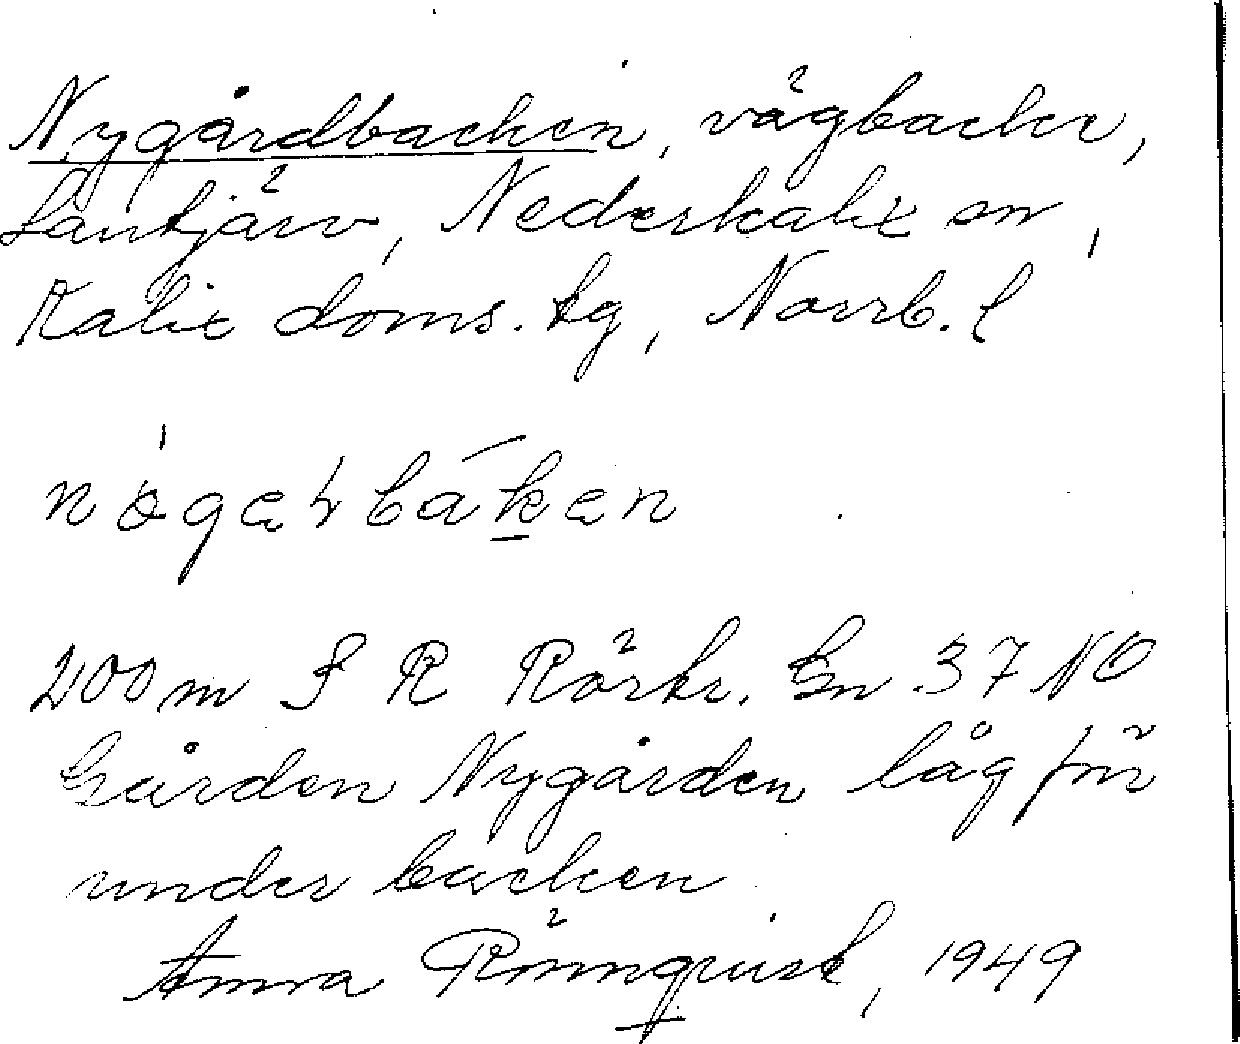 Nygårdbacken, vägbacke,
Lantjärv, Nederkalix sn,
Kalix doms. tg, Norrb. l
200 m S R Rörkr. Gn 37 NO
Gården Nygården låg förr
under backen
Anna Rönnqvist, 1949